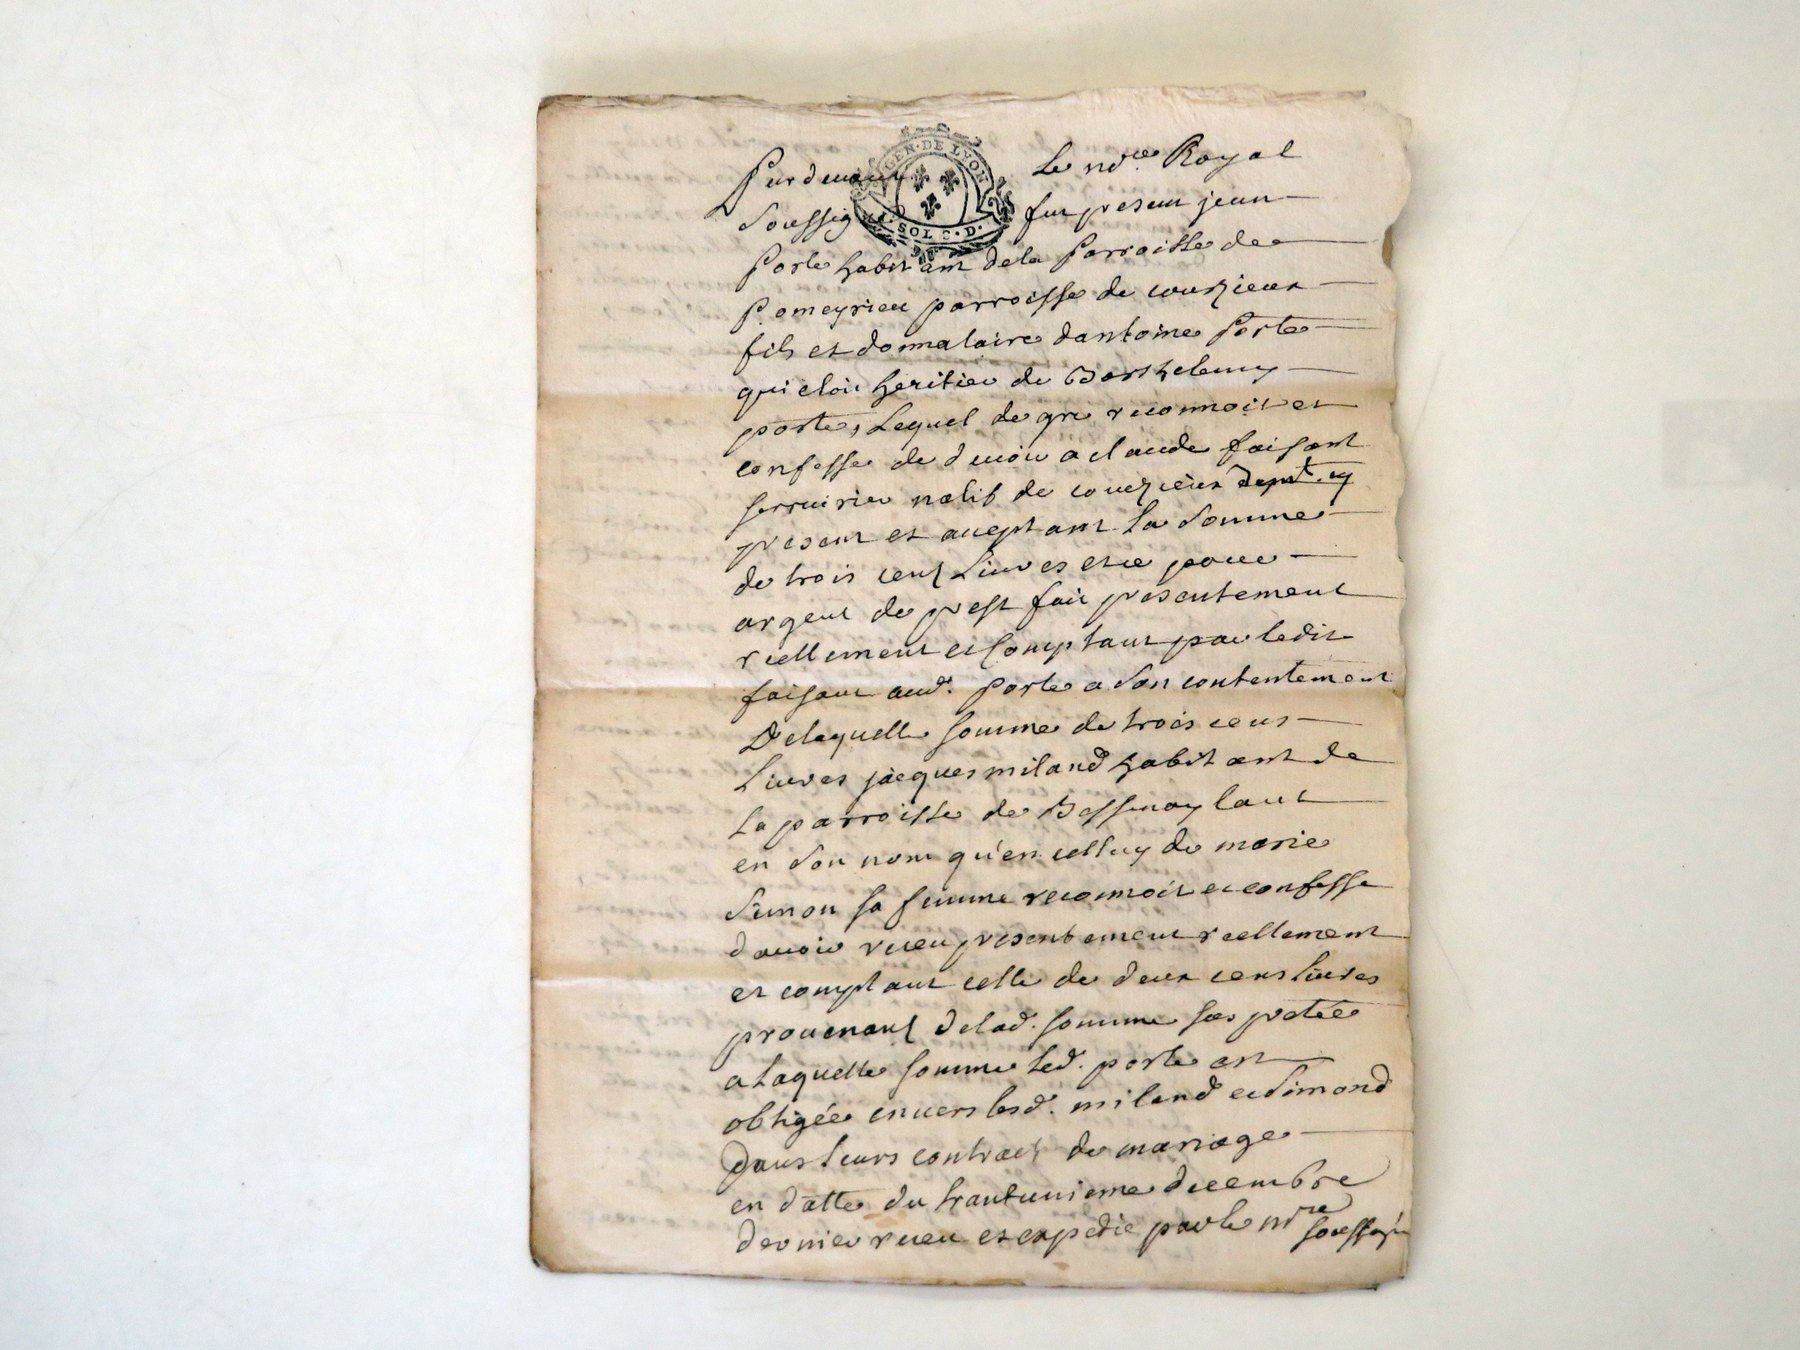 GEN · DE LYON
SOL 8 · D ·
Pardevant Le no.re Royal
Soussigné fut present jean
Porte habitant dela Parroisse de
Pomeyrieu parroisse de courzieux
fils et donnataire dantoine Porte
qui etoit heritier de Barthelemy
porte, Lequel de gre reconnoit et
confesse de devoir a claude faisant
serrurier natif de courzieux
present et aceptant la Somme
de trois cent Livres et ce pour
argent de prest fait presentement
reellement et Comptant par ledit
faisant aud. porte a Son contentement
De laquelle somme de trois cens
Livres jacques miland habitant de
La parroisse de Bessenay tant
en Son nom qu'en celluy de marie
Simon sa femme reconnoit et confesse
davoir receu presentement reellement
et comptant celle de deux cens livres
provenant delad. somme pretée
a Laquelle somme led. porte est
obligée envers lesd. miland et Simond
Dans leurs contract de mariage
en datte du trantunieme decembre
dernier receu et expedié par le no.re soussigné